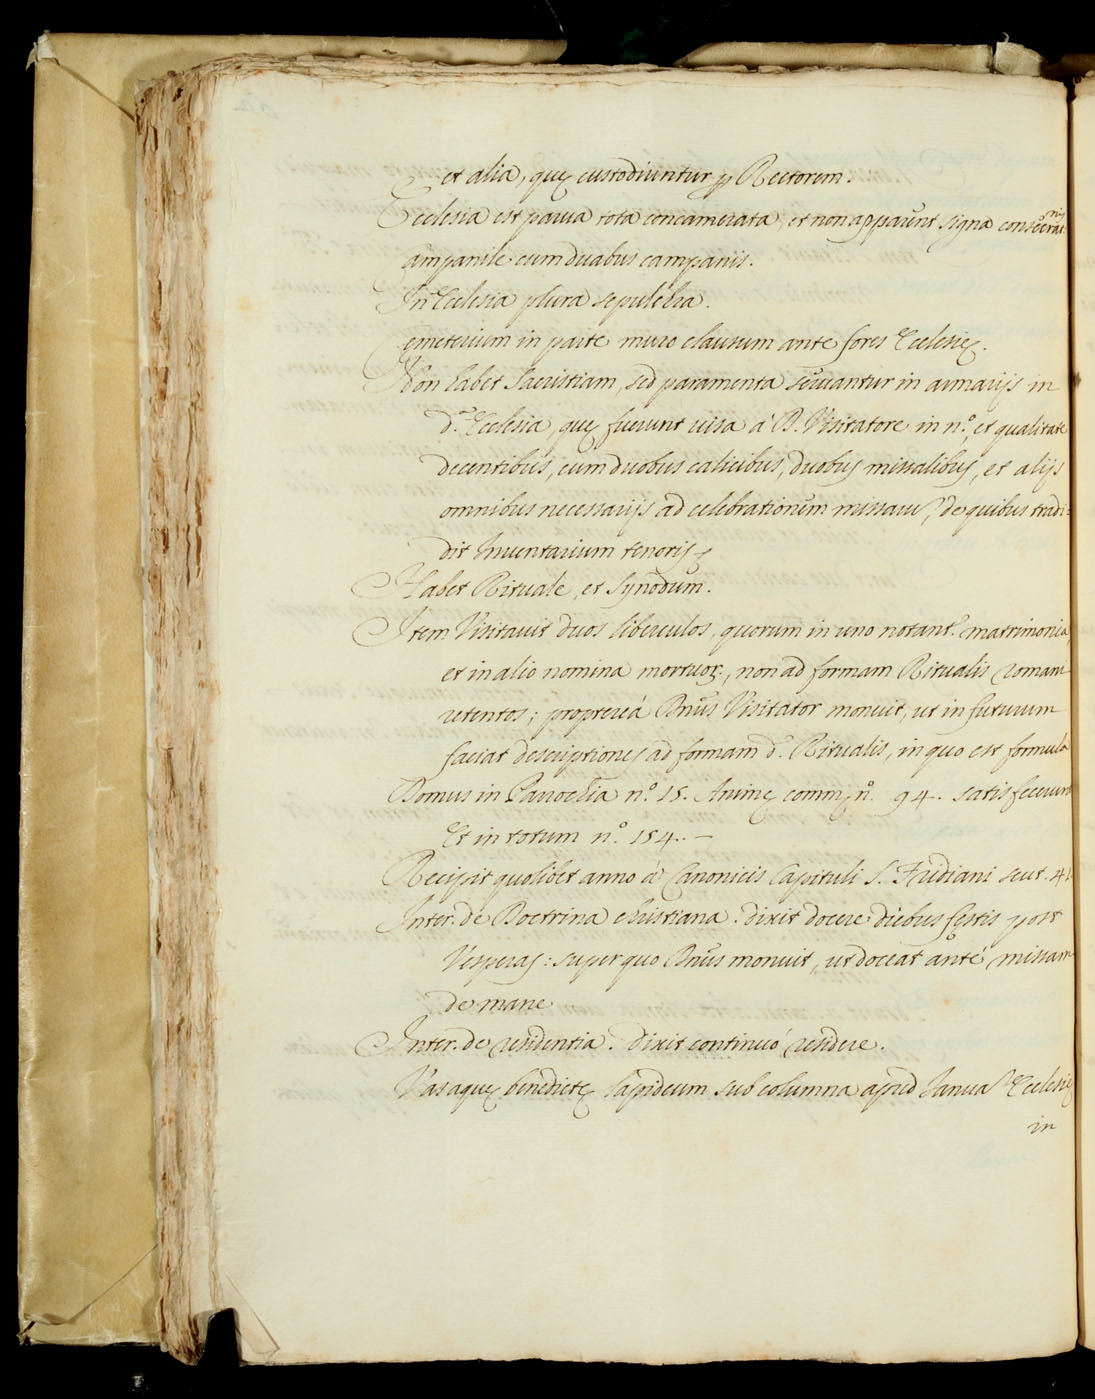 et alia, quę custodiuntur ꝑ Rectorem.
Ecclesia est parua tota concamerata, et non apparent signa consecrat.nis
Campanile cum duabus campanis.
In Ecclesia plura sepulchra.
Cemeterium in parte muro clausum ante fores Ecclesię.
Non habet Sacristiam, sed paramenta seruantur in armarijs in
d.a Ecclesia, quę fuerunt uisa à D. Visitatore in n.o, et qualitate
decentibus, cum duobus calicibus, duobus missalibus, et alijs
omnibus necessarijs ad celebrationem missaru, de quibus tradi=
dit Inuentarium tenoris
Habet Rituale, et Synodum.
Item Visitauit duos liberculos, quorum in uno notant.r matrimonia,
et in alio nomina mortuoꝝ, non ad formam Ritualis romani
retentos; proptereà Dnus Visitator monuit, ut in futurum
faciat descriptiones ad formam d. Ritualis, in quo est formula
Domus in Parochia n.o 15. Animę comm.s n.o 94. satisfecerunt
Et in totum n.o 154. —
Recipit quolibet anno à Canonicis Capituli S. Fridiani scut. 41
Inter. de Doctrina christiana. dixit docere diebus festis post
Vesperas: super quo Dnus monuit, ut doceat antè missam
de mane
Inter. de residentia. dixit continuò residere.
Vas aquę benedictę lapideum sub columna apud Ianua Ecclesię
in